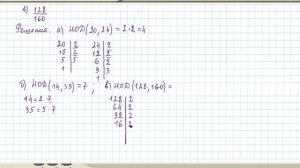 в) 128/160
Решение. а) НОД(20,24) = 2·2 = 4
20 | 2   24 | 2
10 | 2   12 | 2
5 | 5   6 | 2
1   3 | 3
1
б) НОД(14,35) = 7 , в) НОД(128,160) =
14 = 2·7   128 | 2
35 = 5·7   64 | 2
32 | 2
16 | 2